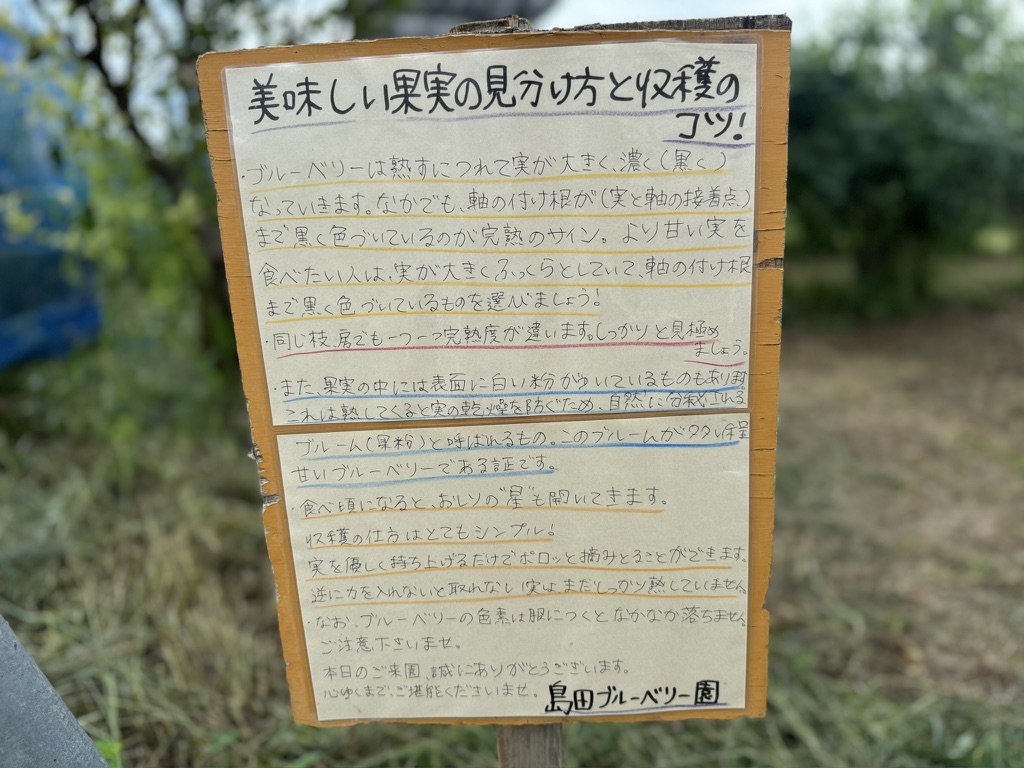 美味しい果実の見分け方と収穫の
コツ!
・ブルーベリーは熟すにつれて実が大きく、濃く(黒く)
なっていきます。なかでも、軸の付け根が(実と軸の接着点)
まで黒く色づいているのが完熟のサイン。より甘い実を
食べたい人は、実が大きくふっくらとしていて、軸の付け根
まで黒く色づいているものを選びましょう!
・同じ枝、房でも一つ一つ完熟度が違います。しっかりと見極め
ましょう。
・また、果実の中には表面に白い粉がついているものもあります。
これは熟してくると実の乾燥を防ぐため、自然に分泌される
ブルーム(果粉)と呼ばれるもの。このブルームが多い程
甘いブルーベリーである証です。
・食べ頃になると、おしりの"星"も開いてきます。
収穫の仕方はとてもシンプル!
実を優しく持ち上げるだけでポロッと摘みとることができます。
逆に力を入れないと取れない実はまだしっかり熟していません。
・なお、ブルーベリーの色素は服につくとなかなか落ちません。
ご注意下さいませ。
本日のご来園、誠にありがとうございます。
心ゆくまで、ご堪能くださいませ。
島田ブルーベリー園